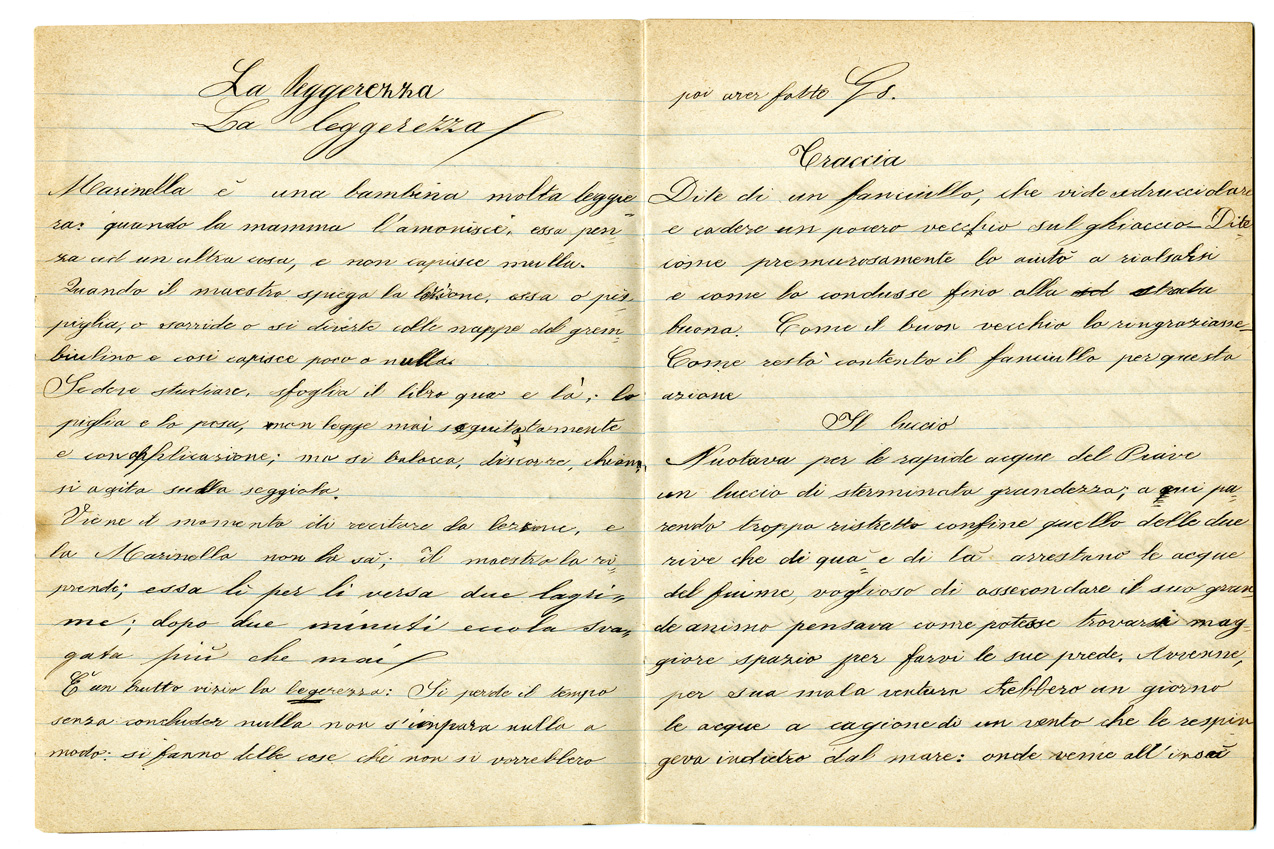 La leggerezza
La leggerezza
Marinella è una bambina molta leggie-
ra: quando la mamma l'amonisiè, essa pen-
za ad un altra cosa, e non capisce mulla.
Quando il maestro spiega la lezione, essa o pis-
piglia, o sorride o si diverte colle nappe del grem-
biulino e così capisce poco o nulla.
Se deve studiare, sfoglia il libro qua e là; lo
piglia e lo posa, non legge mai seguitatamente
e con applicazione; ma si balocca, discorre, chiama,
si agita sulla seggiola.
Viene il momento di recitare la lezione, e
la Marinella non la sà; il maestro la ri-
prende; essa lì per lì versa due lagri-
me; dopo due minuti eccola sva-
gata più che mai
È un brutto vizio la legerezza: Si perde il tempo
senza concluder nulla non s'impara nulla a
modo: si fanno delle cose che non si vorrebbero
poi aver fatte Gs.
Traccia
Dite di un fanciullo, che vide sdrucciolare
e cadere un povero vecchio sul ghiaccio— Dite
come premurosamente lo aiutò a rialzarsi
e come lo condusse fino alla strada
buona. Come il buon vecchio lo ringraziasse—
Come restò contento il fanciullo per questa
azione
Il luccio
Nuotava per le rapide acque del Piave
un luccio di sterminata grandezza; a qui pa-
rendo troppo ristretto confine quello delle due
rive che di quà e di là arrestano le acque
del fiume, voglioso di assecondare il suo gran-
de animo pensava come potesse trovarsi mag-
giore spazio per farvi le sue prede. Avvenne,
per sua mala ventura crebbero un giorno
le acque a cagione di un vento che le respin
geva indietro dal mare: onde venne all'insù